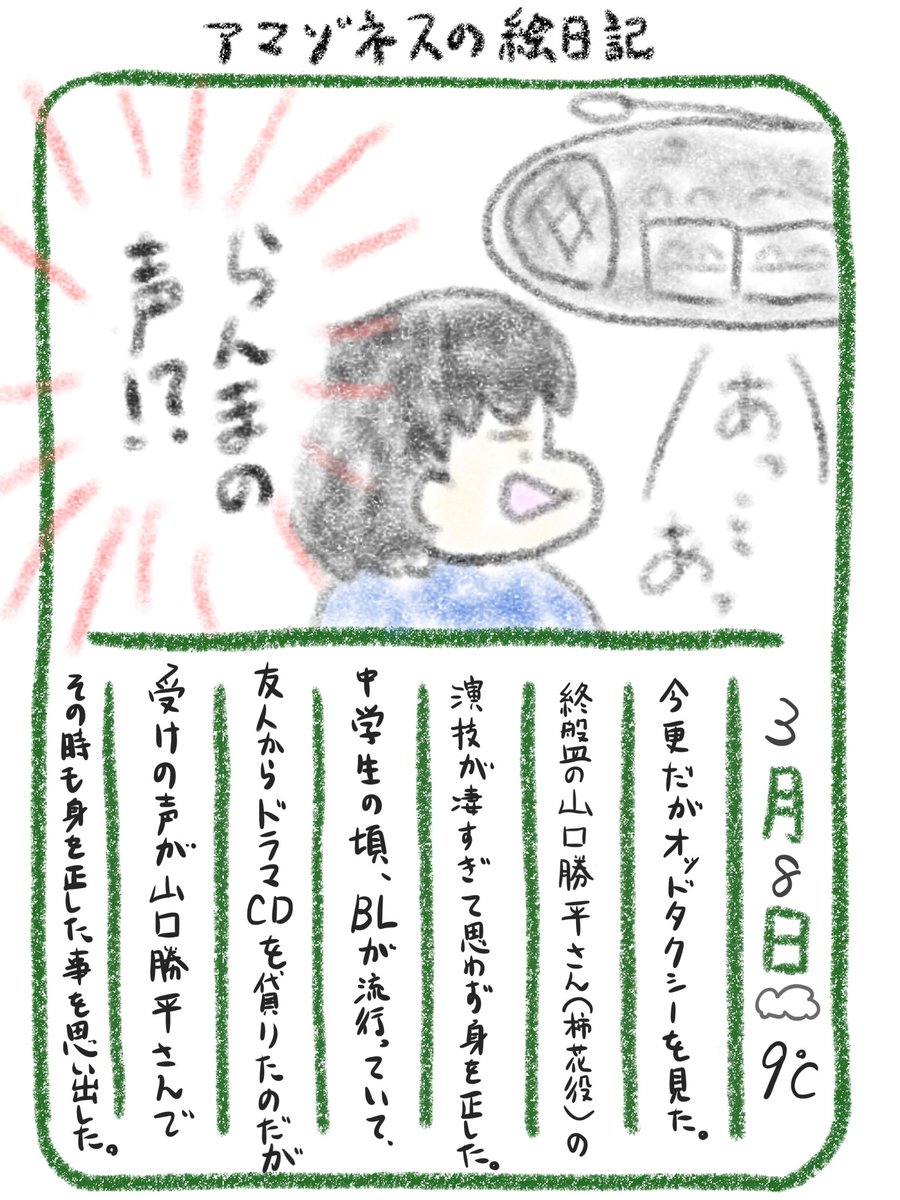 アマゾネスの絵日記
らんまの
声!?
あっ…
あっ
3月8日
9℃
今更だがオッドタクシーを見た。
終盤の山口勝平さん(柿花役)の
演技が凄すぎて思わず身を正した。
中学生の頃、BLが流行っていて、
友人からドラマCDを貸りたのだが
受けの声が山口勝平さんで
その時も身を正した事を思い出した。